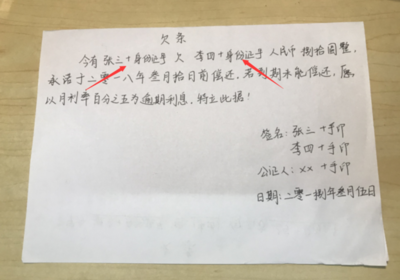 欠条
今有 张三+身份证号 欠 李四+身份证号 人民币 捌拾圆整,
承诺于二零一八年叁月拾日前偿还,若到期未能偿还,愿
以月利率百分之五为逾期利息,特立此据!
签名:张三+手印
李四+手印
公证人:xx+手印
日期:二零一捌年叁月伍日